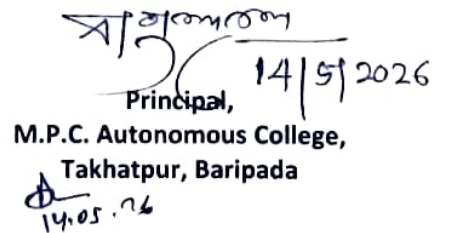 14/5/2026
Principal,
M.P.C. Autonomous College,
Takhatpur, Baripada
14.05.26